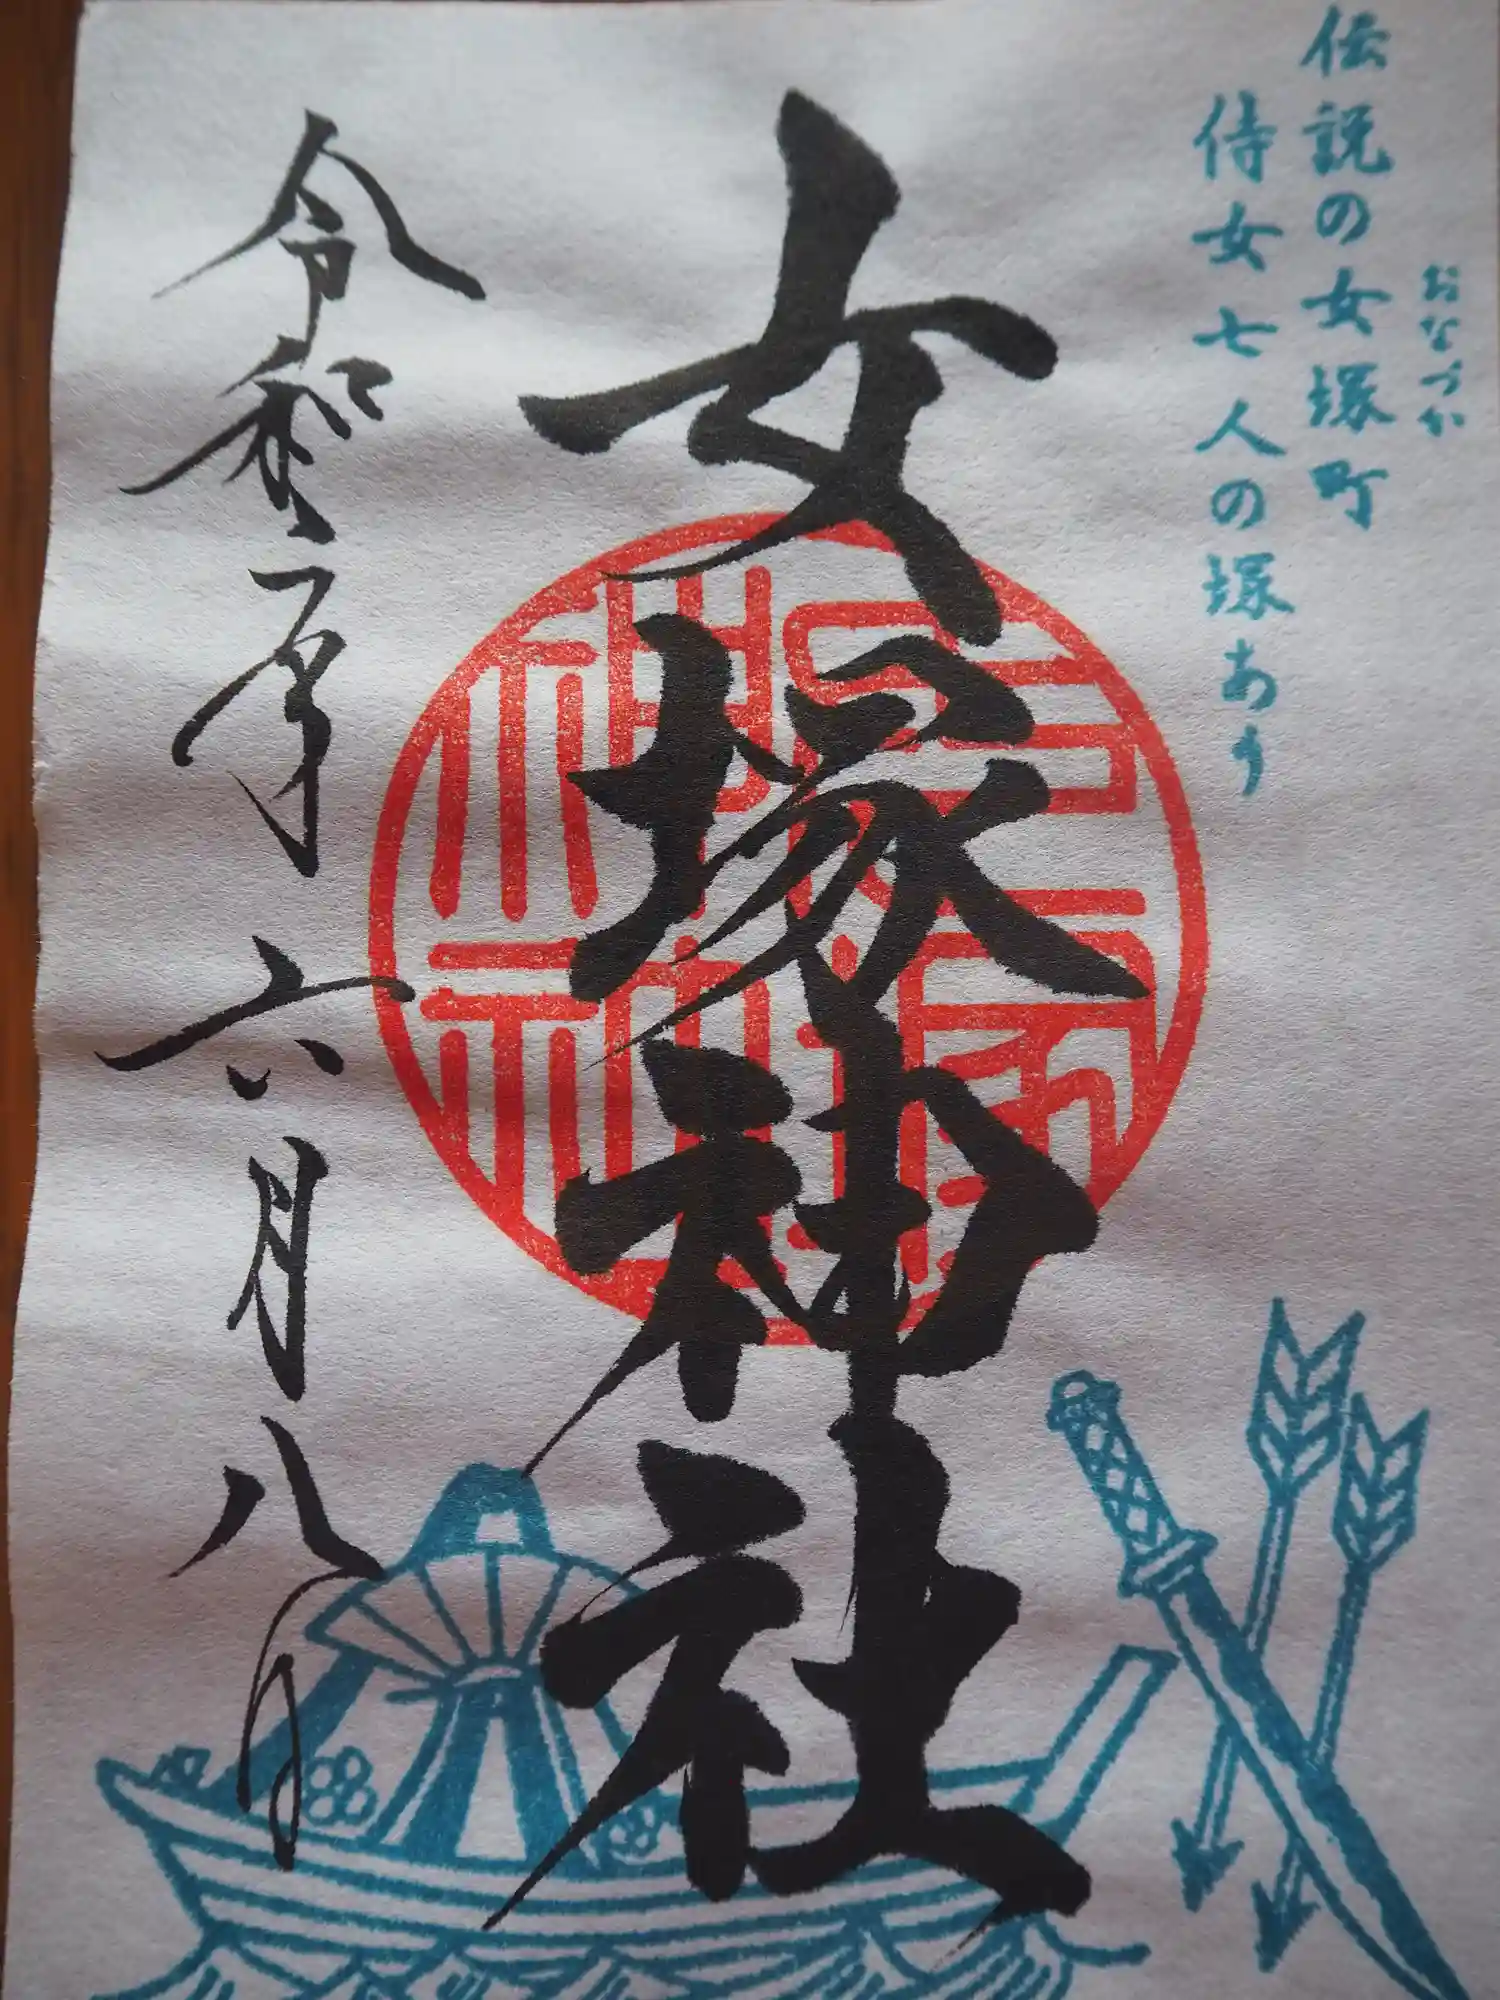 おなづか
伝説の女塚町
侍女七人の塚あり
女塚神社
令和二年六月八日